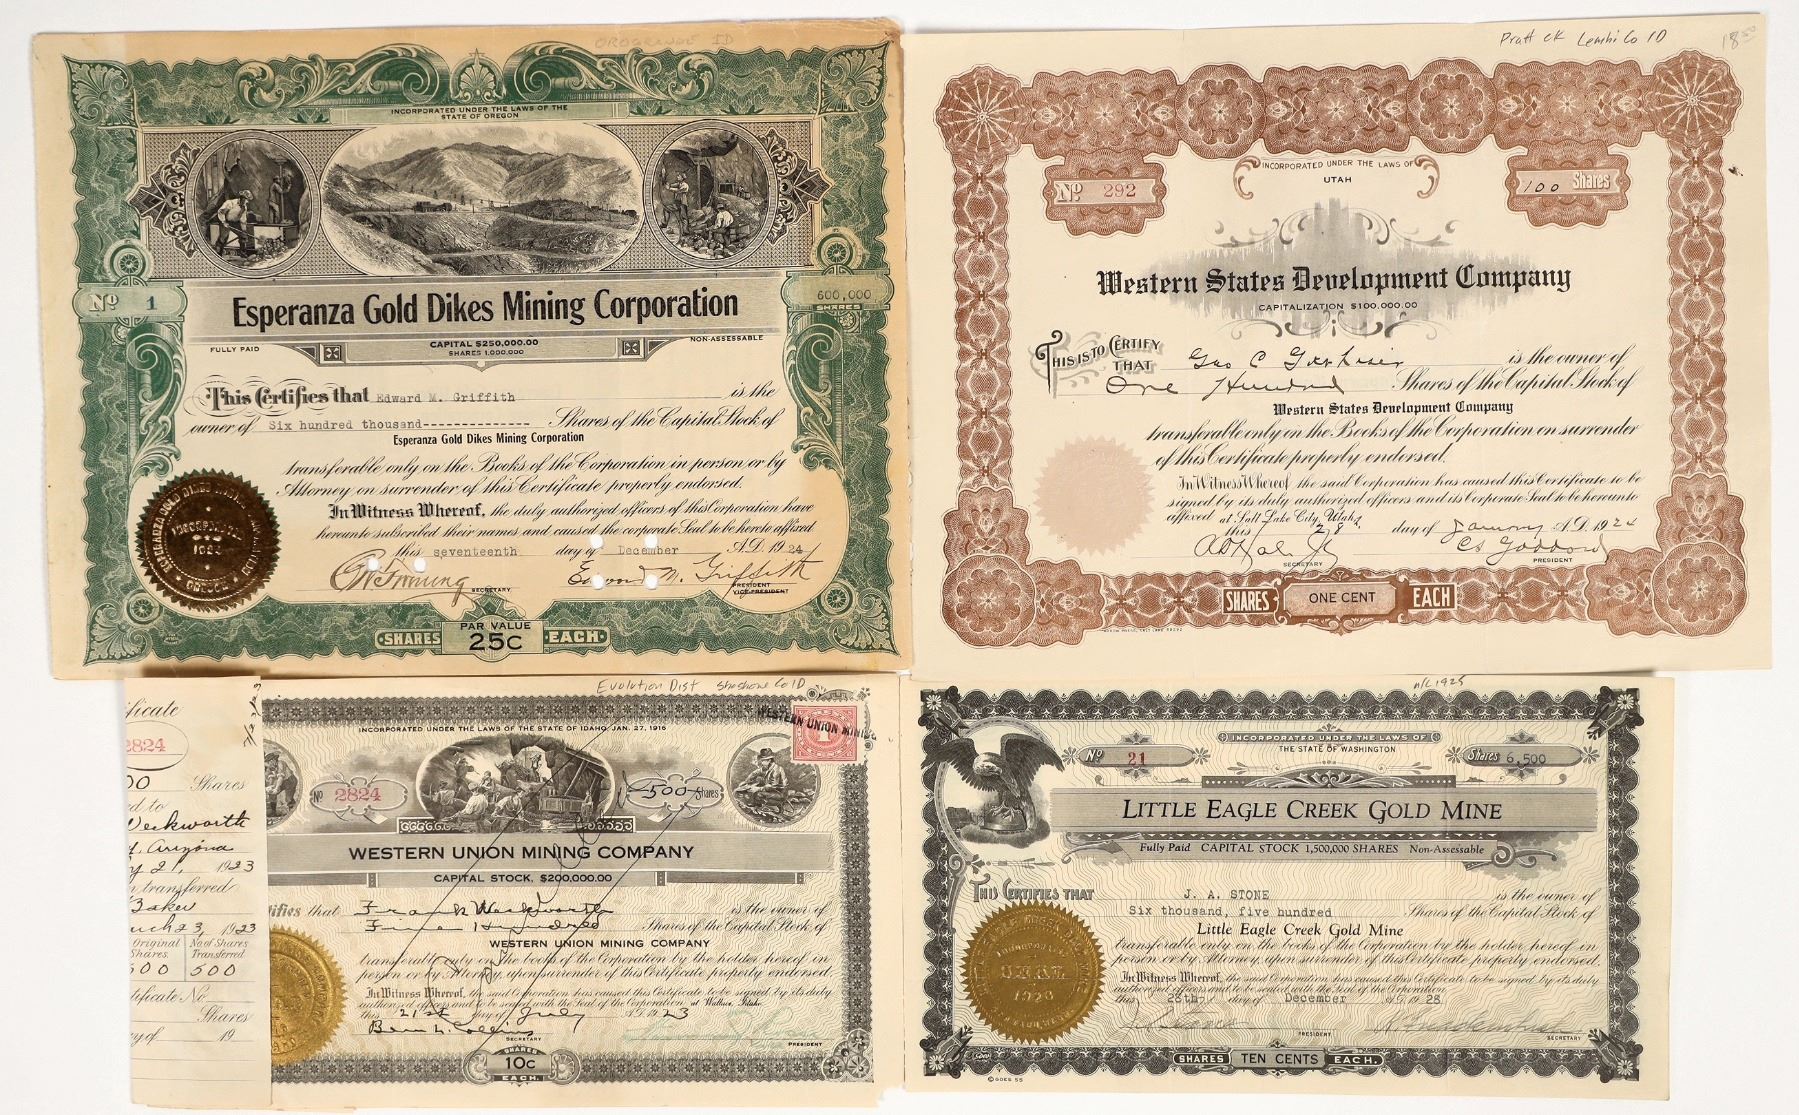 OROGRANDE ID
INCORPORATED UNDER THE LAWS OF THE
STATE OF OREGON
No 1
600,000
SHARES
Esperanza Gold Dikes Mining Corporation
FULLY PAID
CAPITAL $250,000.00
SHARES 1,000,000
NON-ASSESSABLE
This Certifies that Edward M. Griffith is the
owner of Six hundred thousand Shares of the Capital Stock of
Esperanza Gold Dikes Mining Corporation
transferable only on the Books of the Corporation in person or by
Attorney on surrender of this Certificate properly endorsed.
In Witness Whereof, the duly authorized officers of this Corporation have
hereunto subscribed their names and caused the corporate Seal to be hereto affixed
this seventeenth day of December A.D. 1924
Edward M. Griffith
SECRETARY
PRESIDENT
VICE-PRESIDENT
INCORPORATED
1924
OREGON
PAR VALUE
SHARES 25C EACH
Pratt CK Lemhi Co ID
18.50
INCORPORATED UNDER THE LAWS OF
UTAH
No 292
100 Shares
Western States Development Company
CAPITALIZATION $100,000.00
THIS IS TO CERTIFY
THAT Geo C is the owner of
One Hundred Shares of the Capital Stock of
Western States Development Company
transferable only on the Books of the Corporation on surrender
of this Certificate properly endorsed.
In Witness Whereof, the said Corporation has caused this Certificate to be
signed by its duly authorized officers and its Corporate Seal to be hereunto
affixed at Salt Lake City, Utah,
this 28 day of January A.D. 1924
CS Goddard
SECRETARY
PRESIDENT
SHARES ONE CENT EACH
Evolution Dist Shoshone Co ID
7/23/23
ificate
2824
00 Shares
d to
Weckworth
Arizona
y 21, 1923
transferred
Baker
3, 1923
Original No of Shares
Shares. Transferred
500 500
tificate No
Shares
y of 19
WESTERN UNION MINING
INCORPORATED UNDER THE LAWS OF THE STATE OF IDAHO, JAN. 27, 1916
No 2824
500 Shares
WESTERN UNION MINING COMPANY
CAPITAL STOCK, $200,000.00
tifies that Frank Weckworth is the owner of
Five Hundred Shares of the Capital Stock of
WESTERN UNION MINING COMPANY
transferable only on the books of the Corporation by the holder hereof in
person or by Attorney, upon surrender of this Certificate properly endorsed.
In Witness Whereof, the said Corporation has caused this Certificate to be signed by its duly
authorized officers and to be sealed with the Seal of the Corporation at Wallace, Idaho
this 21st day of July A.D. 1923
Collins
SECRETARY
PRESIDENT
SHARES
10C
EACH
n/c 1925
INCORPORATED UNDER THE LAWS OF
THE STATE OF WASHINGTON
No 21
Shares 6,500
LITTLE EAGLE CREEK GOLD MINE
Fully Paid CAPITAL STOCK 1,500,000 SHARES Non-Assessable
THIS CERTIFIES THAT J. A. STONE is the owner of
Six thousand, five hundred Shares of the Capital Stock of
Little Eagle Creek Gold Mine
transferable only on the books of the Corporation by the holder hereof in
person or by Attorney, upon surrender of this Certificate properly endorsed.
In Witness Whereof, the said Corporation has caused this Certificate to be signed by its duly
authorized officers and to be sealed with the Seal of the Corporation
this 28th day of December A.D. 1928
SEAL
1928
PRESIDENT
SECRETARY
SHARES TEN CENTS EACH.
© GOES 55